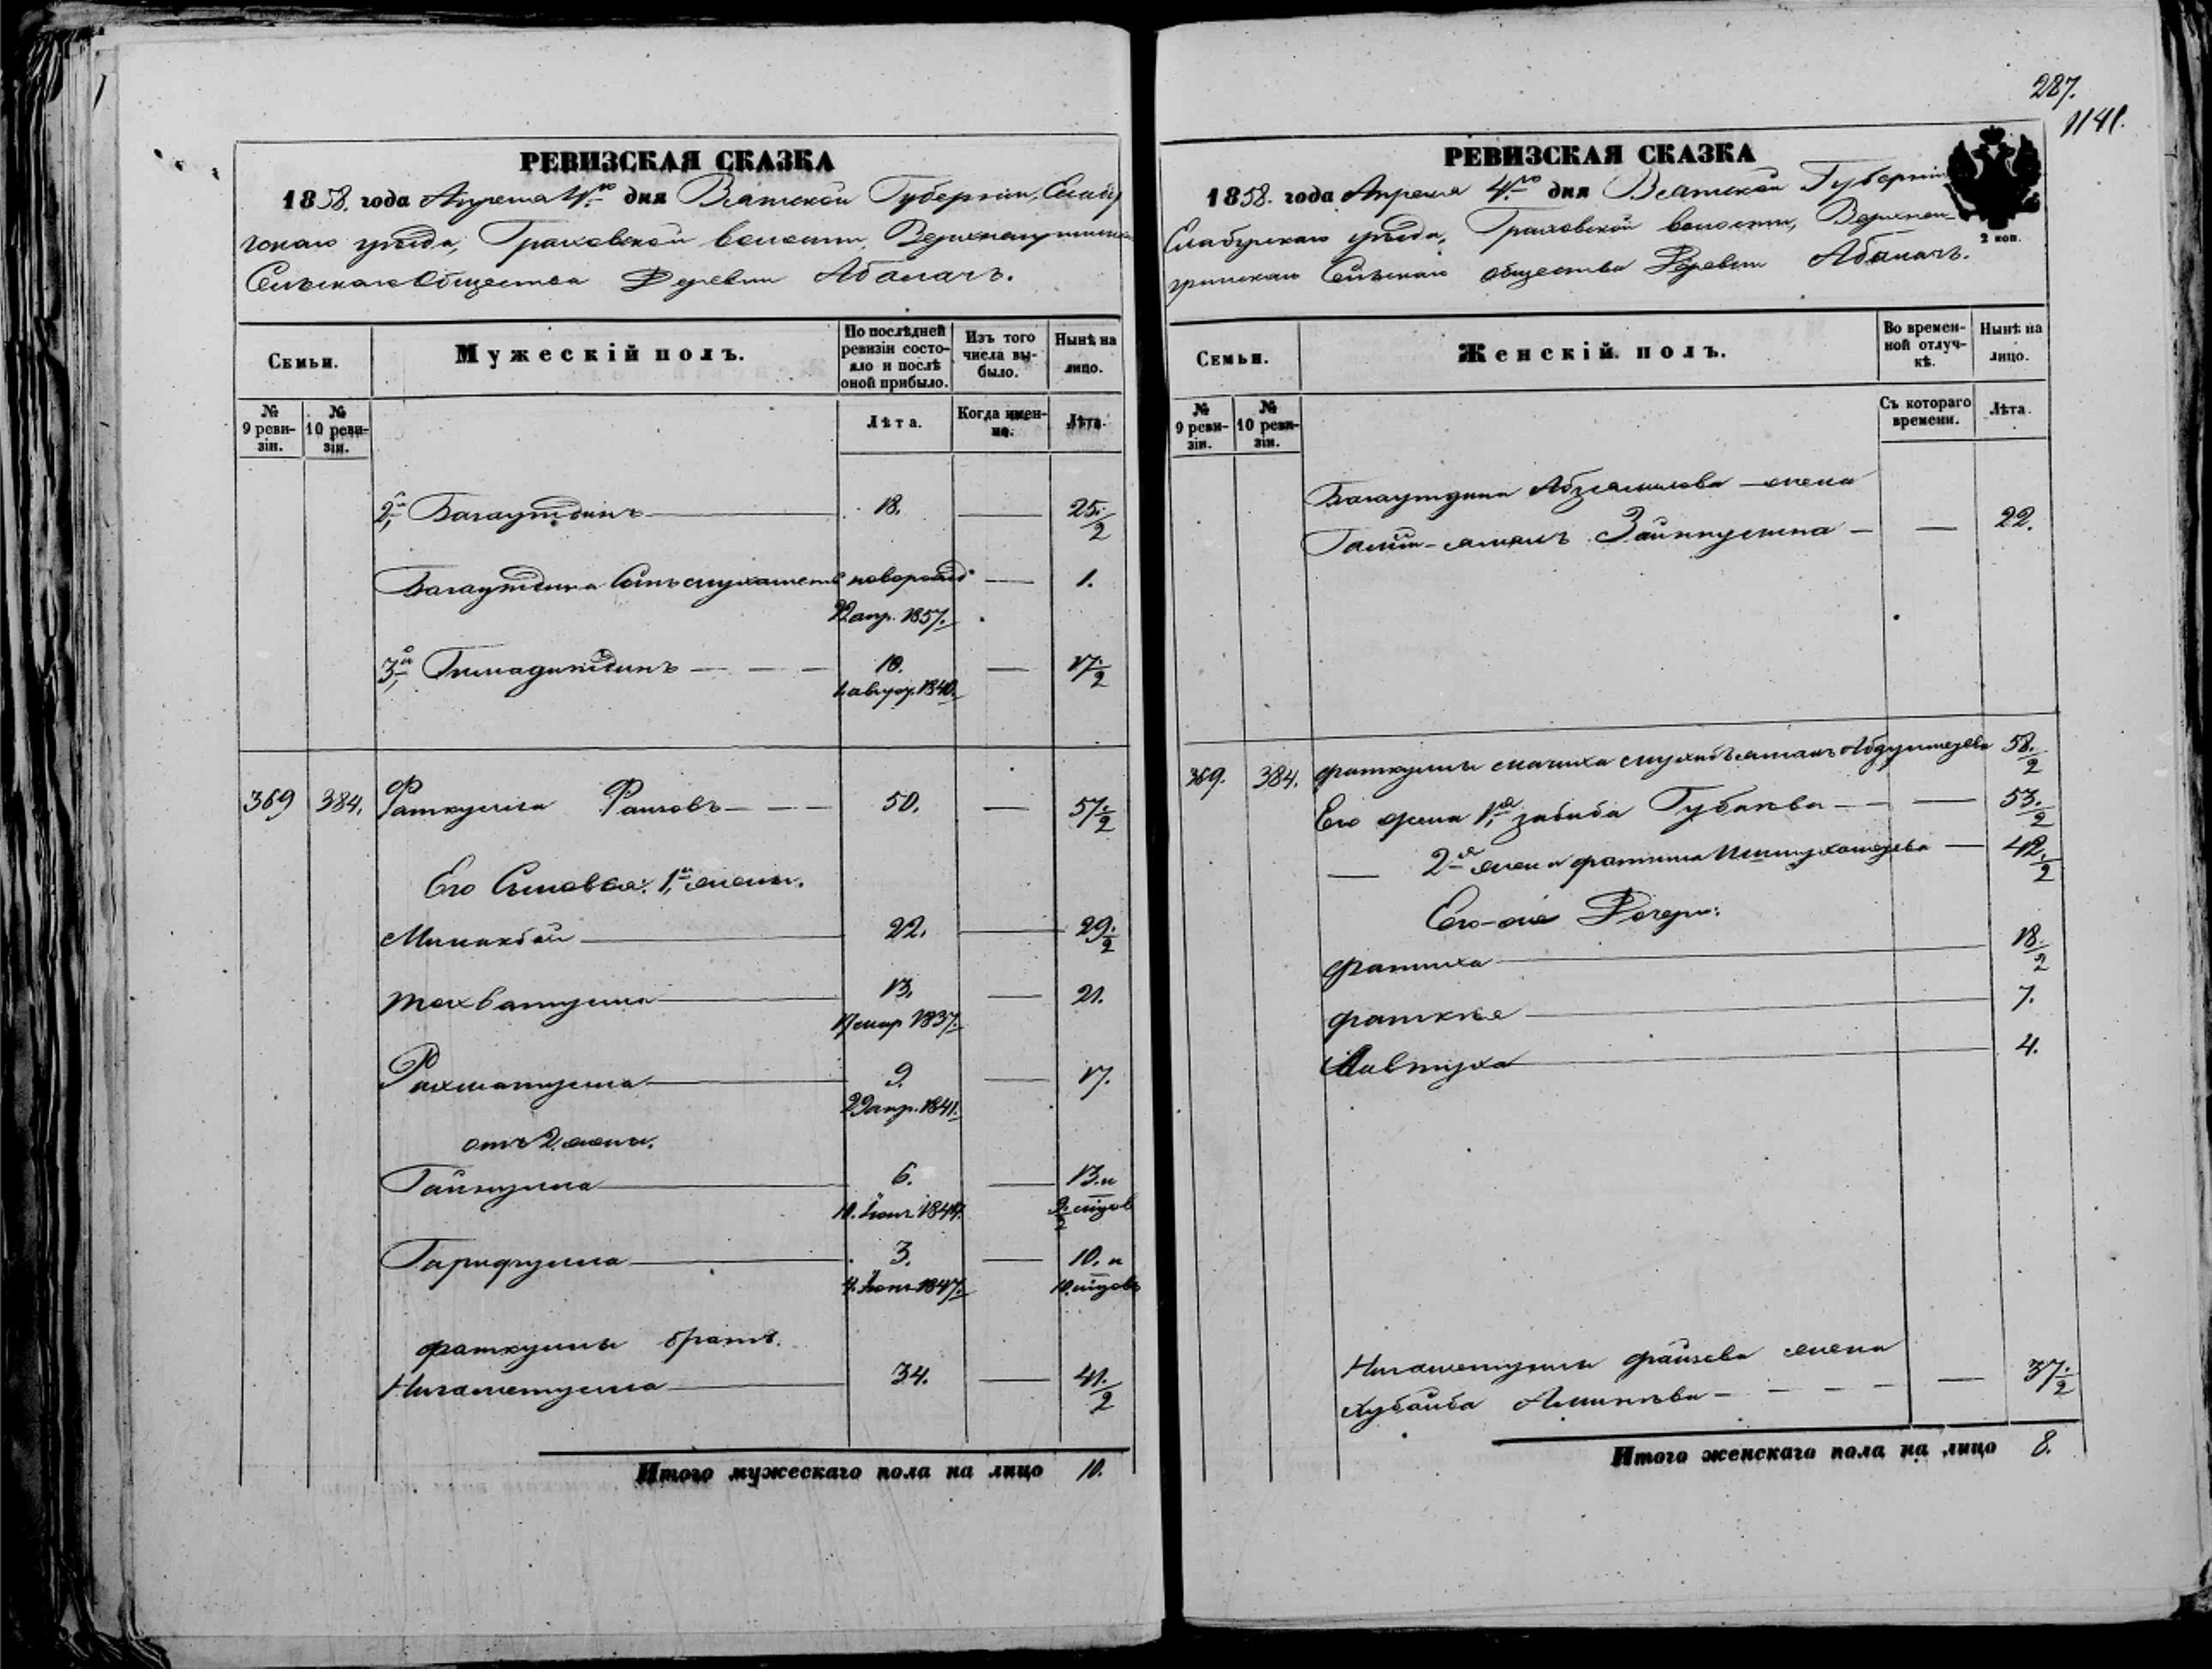 287.
1141.
РЕВИЗСКАЯ СКАЗКА
1858. года Апреля 4го дня Вятской Губернии, Елабу
гскаго уезда, Граховской волости,
Сельскаго Общества Деревни Абалачъ.
Семьи.
Мужескій полъ.
По послѣдней ревизіи состояло и послѣ оной прибыло.
Изъ того числа выбыло.
Нынѣ на лицо.
№ 9 ревизіи.
№ 10 ревизіи.
Лѣта.
Когда именно.
Лѣта.
2й Багаутдинъ — 18. — 25 1/2
Багаутдина Сынъ новорожд — 1.
22 апр. 1857.
3й Гимадитдинъ — — — 10. — 17 1/2
1 август. 1840.
369 384. Фаткулла Фаизовъ — — — 50. — 57 1/2
Его Сыновья: 1й жены.
Миникбай — 22. — 29 1/2
Тохватулла — 13. — 21.
17 мар 1837.
Рахматулла — 9. — 17.
29 апр. 1841.
отъ 2 жены.
Гайнулла — 6. — 13. и
10. Іюня 1844. 9 1/2 мѣсяцов
Гарифулла — 3. — 10. и
4. Іюня 1847. 10. мѣсяцовъ
Фаткуллы братъ.
Нигаметулла — 34. — 41 1/2
Итого мужескаго пола на лицо 10.
РЕВИЗСКАЯ СКАЗКА
1858. года Апреля 4го дня Вятской Губерніи
Елабугскаго уезда, Граховской волости,
Сельскаго общества Деревни Абалачъ.
2 коп.
Семьи.
Женскій полъ.
Во временной отлучкѣ.
Нынѣ на лицо.
№ 9 ревизіи.
№ 10 ревизіи.
Съ котораго времени.
Лѣта.
Багаутдина Абзялилова жена
Зайнуллина — — 22.
369. 384. Фаткуллы мачиха 58 1/2
Его жена 1я Забиба Губаева — — 53 1/2
— 2я жена Фатима — 42 1/2
Его-же Дочери:
Фатиха — 18 1/2
— 7.
— 4.
Нигаметуллы Фаизова жена
Хубайба — — — — — 37 1/2
Итого женскаго пола на лицо 8.